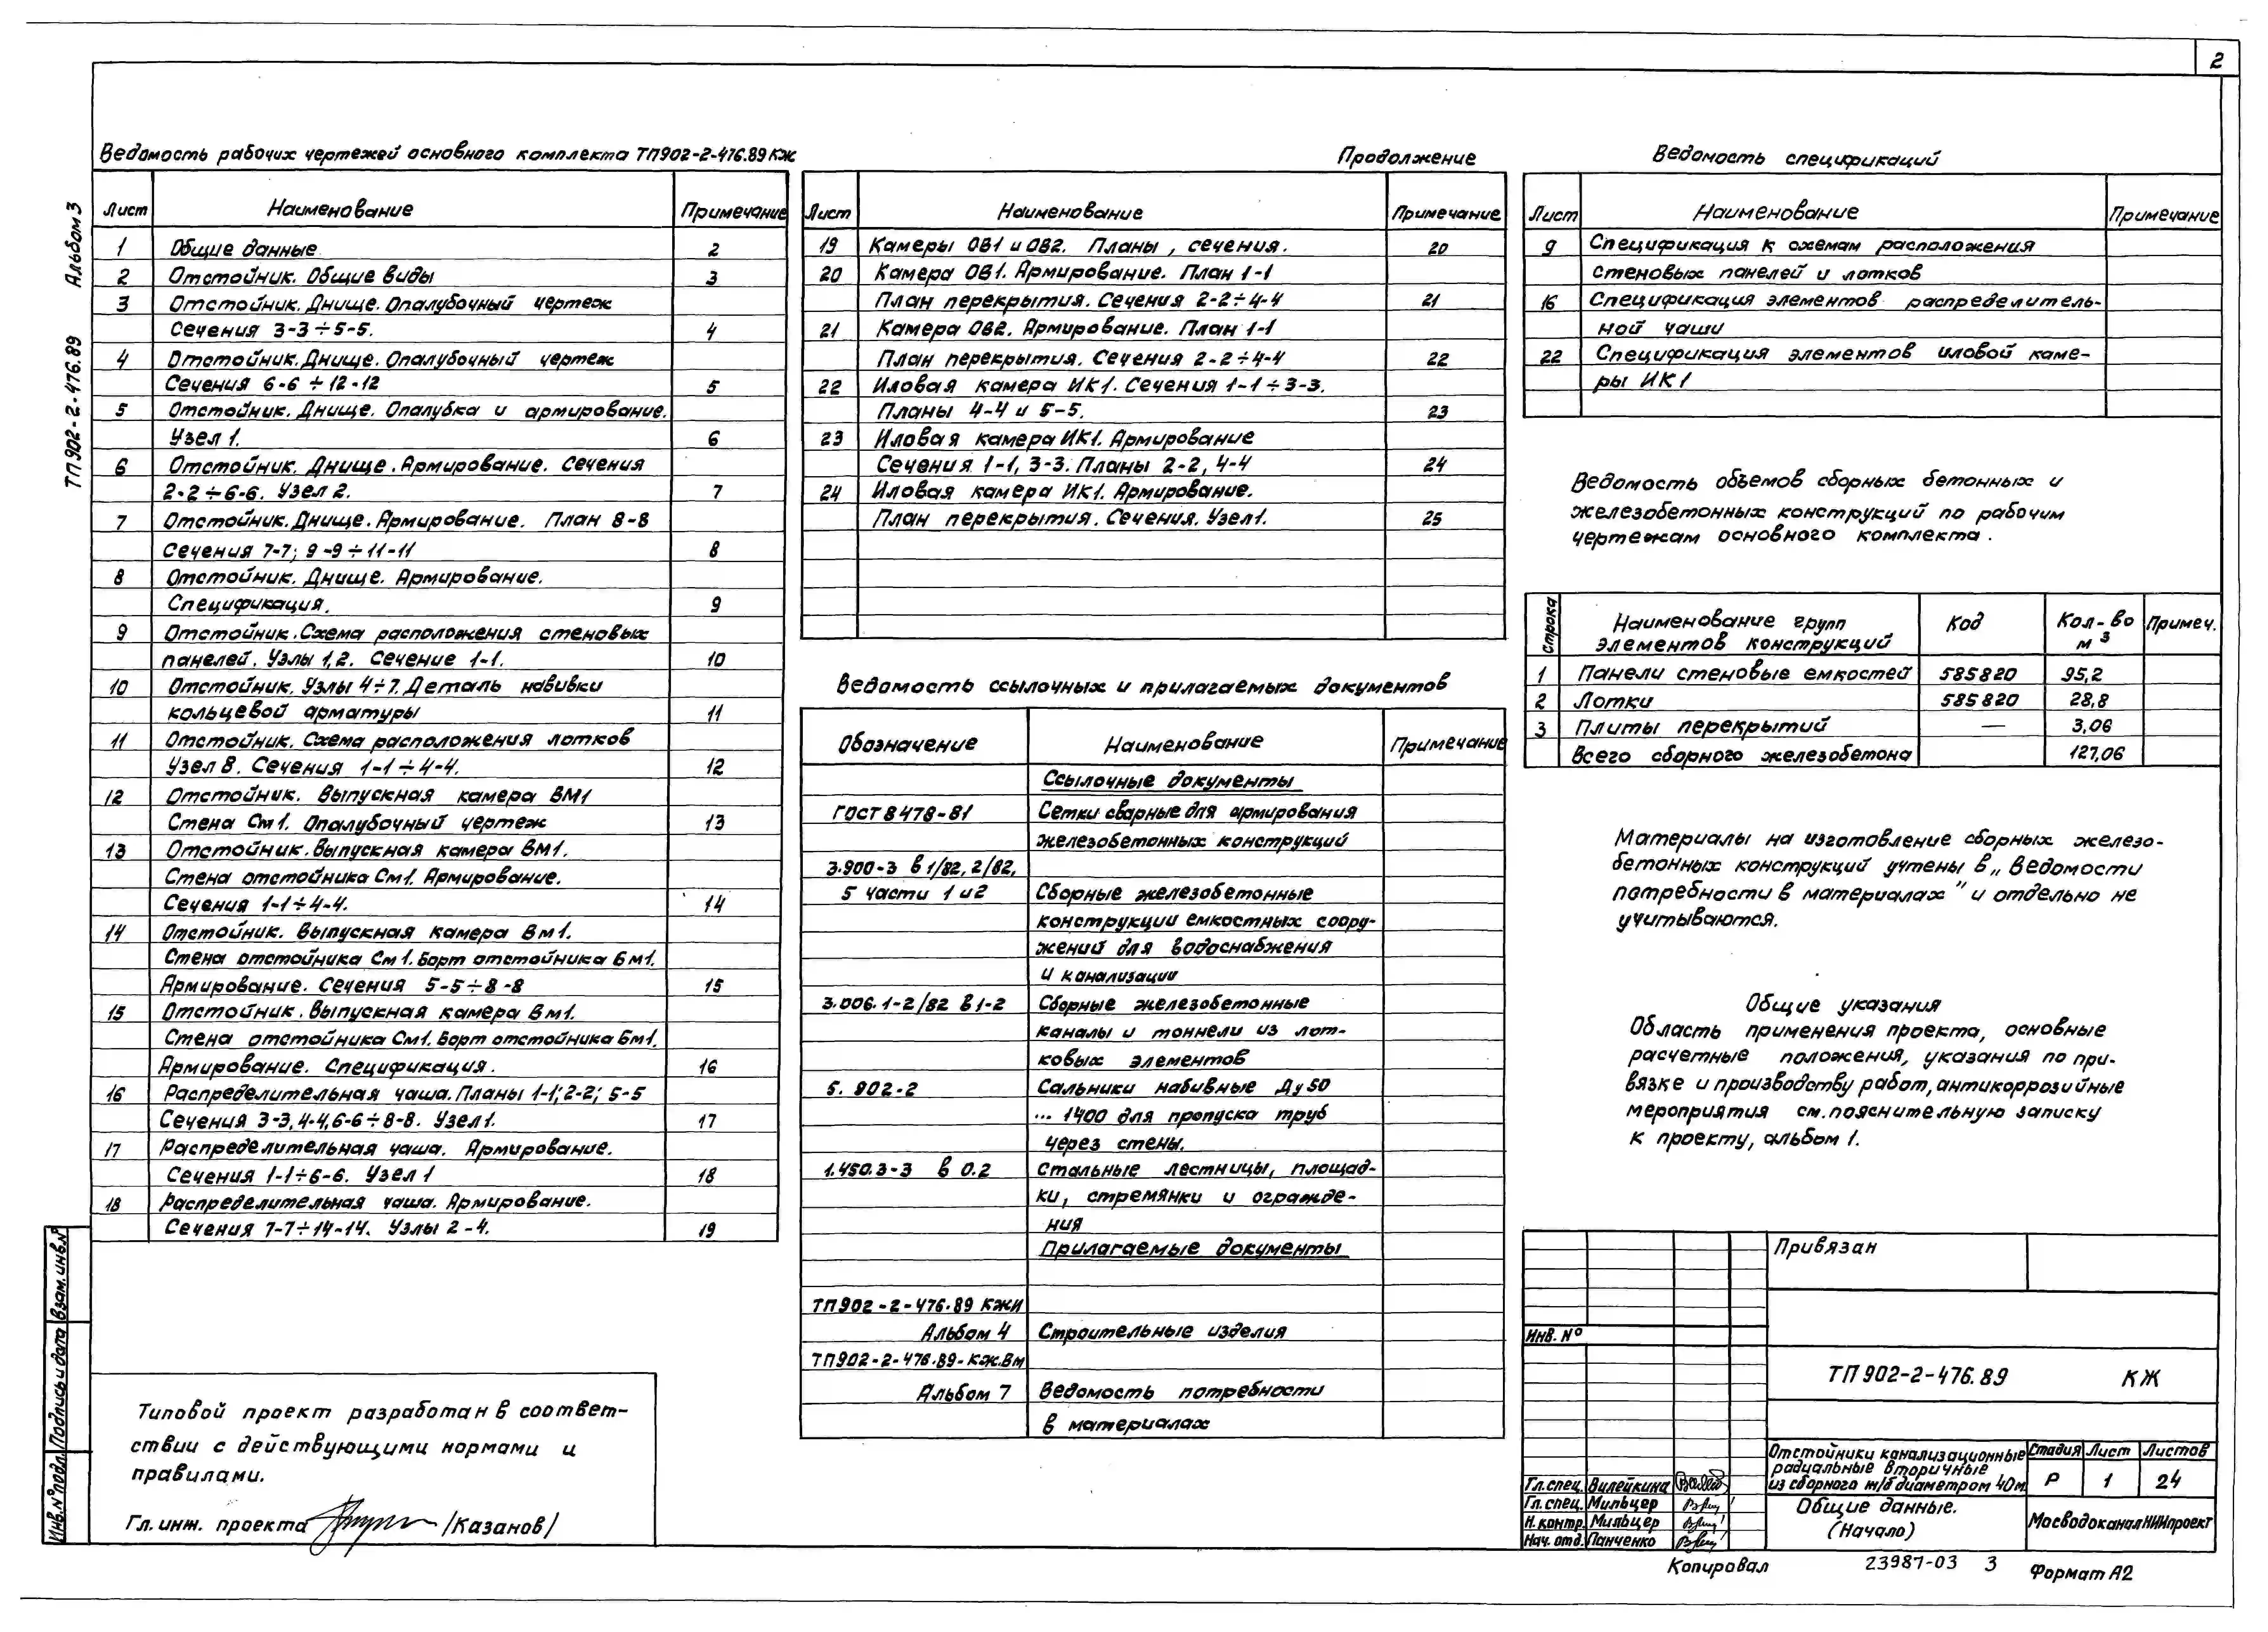 2
Альбом 3
ТП 902-2-476.89
Ведомость рабочих чертежей основного комплекта ТП902-2-476.89 КЖ
Лист Наименование Примечание
1 Общие данные 2
2 Отстойник. Общие виды 3
3 Отстойник. Днище. Опалубочный чертеж
Сечения 3-3÷5-5. 4
4 Отстойник. Днище. Опалубочный чертеж
Сечения 6-6÷12-12 5
5 Отстойник. Днище. Опалубка и армирование.
Узел 1. 6
6 Отстойник. Днище. Армирование. Сечения
2-2÷6-6. Узел 2. 7
7 Отстойник. Днище. Армирование. План 8-8
Сечения 7-7; 9-9÷11-11 8
8 Отстойник. Днище. Армирование.
Спецификация. 9
9 Отстойник. Схема расположения стеновых
панелей. Узлы 1,2. Сечение 1-1. 10
10 Отстойник. Узлы 4÷7. Деталь навивки
кольцевой арматуры 11
11 Отстойник. Схема расположения лотков
Узел 8. Сечения 1-1÷4-4. 12
12 Отстойник. Выпускная камера ВМ1
Стена См1. Опалубочный чертеж 13
13 Отстойник. Выпускная камера ВМ1.
Стена отстойника См1. Армирование.
Сечения 1-1÷4-4. 14
14 Отстойник. Выпускная камера Вм1.
Стена отстойника См1. Борт отстойника Бм1.
Армирование. Сечения 5-5÷8-8 15
15 Отстойник. Выпускная камера Вм1.
Стена отстойника См1. Борт отстойника Бм1.
Армирование. Спецификация. 16
16 Распределительная чаша. Планы 1-1; 2-2; 5-5
Сечения 3-3, 4-4, 6-6÷8-8. Узел 1. 17
17 Распределительная чаша. Армирование.
Сечения 1-1÷6-6. Узел 1 18
18 Распределительная чаша. Армирование.
Сечения 7-7÷14-14. Узлы 2-4. 19
Продолжение
Лист Наименование Примечание
19 Камеры ОВ1 и ОВ2. Планы, сечения. 20
20 Камера ОВ1. Армирование. План 1-1
План перекрытия. Сечения 2-2÷4-4 21
21 Камера ОВ2. Армирование. План 1-1
План перекрытия. Сечения 2-2÷4-4 22
22 Иловая камера ИК1. Сечения 1-1÷3-3.
Планы 4-4 и 5-5. 23
23 Иловая камера ИК1. Армирование
Сечения 1-1, 3-3. Планы 2-2, 4-4 24
24 Иловая камера ИК1. Армирование.
План перекрытия. Сечения. Узел 1. 25
Ведомость ссылочных и прилагаемых документов
Обозначение Наименование Примечание
Ссылочные документы
ГОСТ 8478-81 Сетки сварные для армирования
железобетонных конструкций
3.900-3 в 1/82, 2/82,
5 части 1 и 2 Сборные железобетонные
конструкции емкостных соору-
жений для водоснабжения
и канализации
3.006.1-2/82 в 1-2 Сборные железобетонные
каналы и тоннели из лот-
ковых элементов
5.902-2 Сальники набивные Ду 50
... 1400 для пропуска труб
через стены.
1.450.3-3 в 0.2 Стальные лестницы, площад-
ки, стремянки и огражде-
ния
Прилагаемые документы
ТП 902-2-476.89 КЖИ
Альбом 4 Строительные изделия
ТП902-2-476.89-КЖ.Вм
Альбом 7 Ведомость потребности
в материалах
Ведомость спецификаций
Лист Наименование Примечание
9 Спецификация к схемам расположения
стеновых панелей и лотков
16 Спецификация элементов распределитель-
ной чаши
22 Спецификация элементов иловой каме-
ры ИК1
Ведомость объемов сборных бетонных и
железобетонных конструкций по рабочим
чертежам основного комплекта.
Строка Наименование групп Код Кол-во Примеч.
элементов конструкций м³
1 Панели стеновые емкостей 585820 95,2
2 Лотки 585820 28,8
3 Плиты перекрытий — 3,06
Всего сборного железобетона 127,06
Материалы на изготовление сборных железо-
бетонных конструкций учтены в „Ведомости
потребности в материалах" и отдельно не
учитываются.
Общие указания
Область применения проекта, основные
расчетные положения, указания по при-
вязке и производству работ, антикоррозийные
мероприятия см. пояснительную записку
к проекту, альбом 1.
Взам. инв.№
Подпись и дата
Инв.№ подл.
Типовой проект разработан в соответ-
ствии с действующими нормами и
правилами.
Гл. инж. проекта /Казанов/
Привязан
Инв. №
ТП 902-2-476.89 КЖ
Отстойники канализационные Стадия Лист Листов
радиальные вторичные
из сборного ж/б диаметром 40м Р 1 24
Гл. спец. Вилейкина
Гл. спец. Мильцер
Н. контр. Мильцер
Нач. отд. Панченко
Общие данные.
(Начало)
МосводоканалНИИпроект
Копировал 23987-03 3 Формат А2